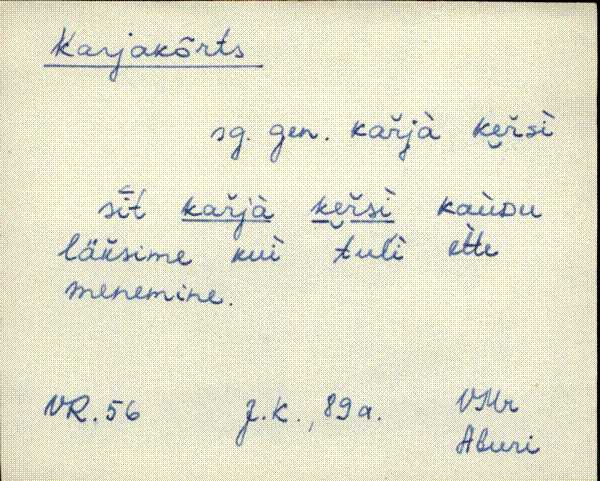 Karjakõrts
sg. gen. kařjà ke̮řsì
sīt kařjà ke̮řsì kaùᴅu
läk̆sime kuì tulì ette
menemine.
VR. 56 J.K., 89 a. VMr
Aburi